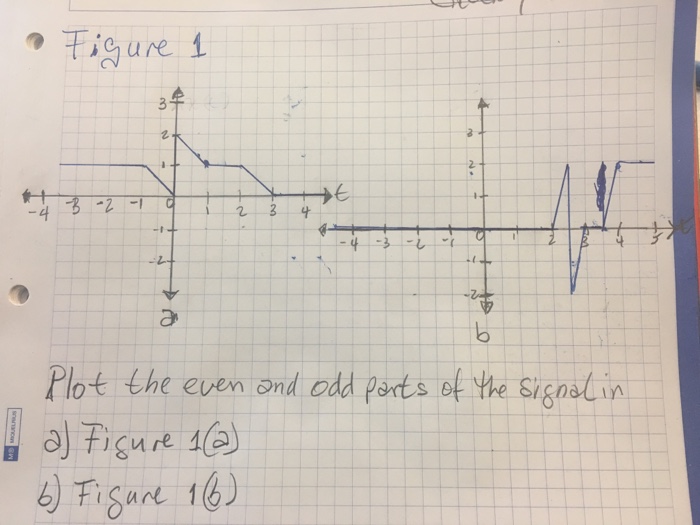 Figure 1
3
2
1
-4 -3 -2 -1 0 1 2 3 4 t
-1
-2
a
3
2
1
-4 -3 -2 -1 0 1 2 3 4 5
-1
-2
b
Plot the even and odd parts of the signal in
a) Figure 1(a)
b) Figure 1(b)